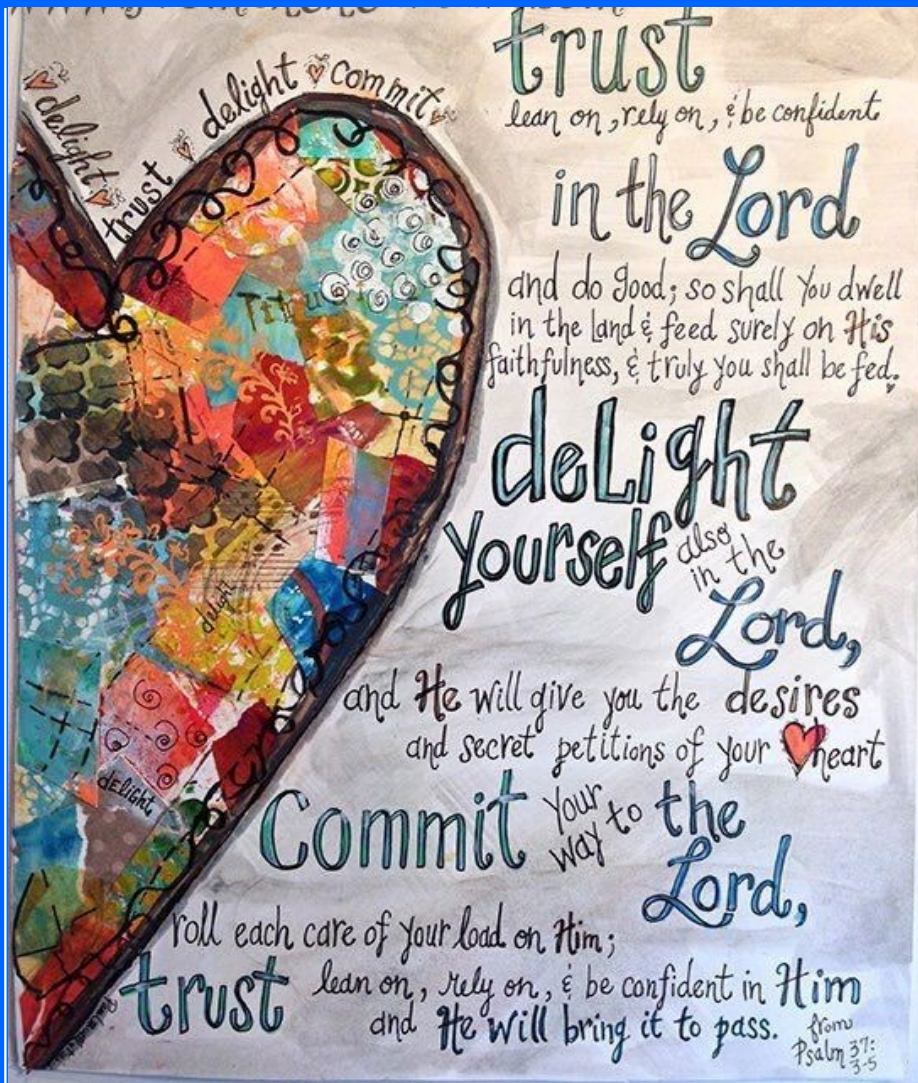 trust
lean on, rely on, & be confident
in the Lord
and do good; so shall you dwell
in the land & feed surely on His
faithfulness, & truly you shall be fed.
deLight
yourself also
in the
Lord,
and He will give you the desires
and secret petitions of your heart
Commit your
way to the
Lord,
roll each care of your load on Him;
trust lean on, rely on, & be confident in Him
and He will bring it to pass.
from
Psalm 37:
3-5
delight
trust
delight
commit
delight
dELIGht